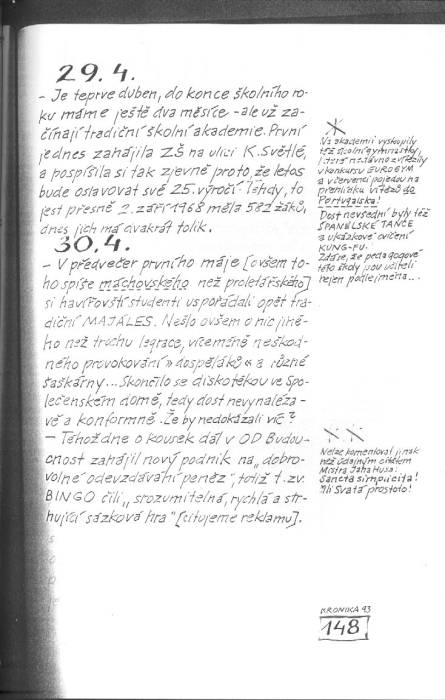 29.4.
- Je teprve duben, do konce školního ro-
ku máme ještě dva měsíce - ale už za-
čínají tradiční školní akademie. První
jednes zahájila ZŠ na ulici K. Světlé,
a pospíšila si tak zjevně proto, že letos
bude oslavovat své 25. výročí. Tehdy, to
jest přesně 2. září 1968 měla 582 žáků,
dnes jich má dvakrát tolik.
30.4.
- V předvečer prvního máje [ovšem to-
ho spíše máchovského než proletářského]
si havířovští studenti uspořádali opět tra-
diční MAJÁLES. Nešlo ovšem o nic jiné-
ho než trochu legrace, víceméně neškod-
ného provokování » dospěláků « a různé
šaškárny... Skončilo se diskotékou ve Spo-
lečenském domě, tedy dost nevynaléza-
vě a konformně. Že by nedokázali víc?
- Téhož dne o kousek dál v OD Budou-
cnost zahájil nový podnik na „dobro-
volné odevzdávání peněz", totiž t. zv.
BINGO čili „srozumitelná, rychlá a str-
hující sázková hra" [citujeme reklamu].
Na akademii vystoupily
též školní gymnastky,
v konkursu EUROGYM
a v červenci pojedou na
přehlídku vítězů do
Portugalska!
Dost nevšední byly též
ŠPANĚLSKÉ TANCE
a ukázkové cvičení
KUNG-FU.
Zdá se, že pedagogové
této školy jsou učiteli
nejen podle jména...
Nelze komentovat jinak
než údajným citátem
Mistra Jana Husa:
Sancta simplicita!
Čili Svatá prostoto!
KRONIKA 93
148